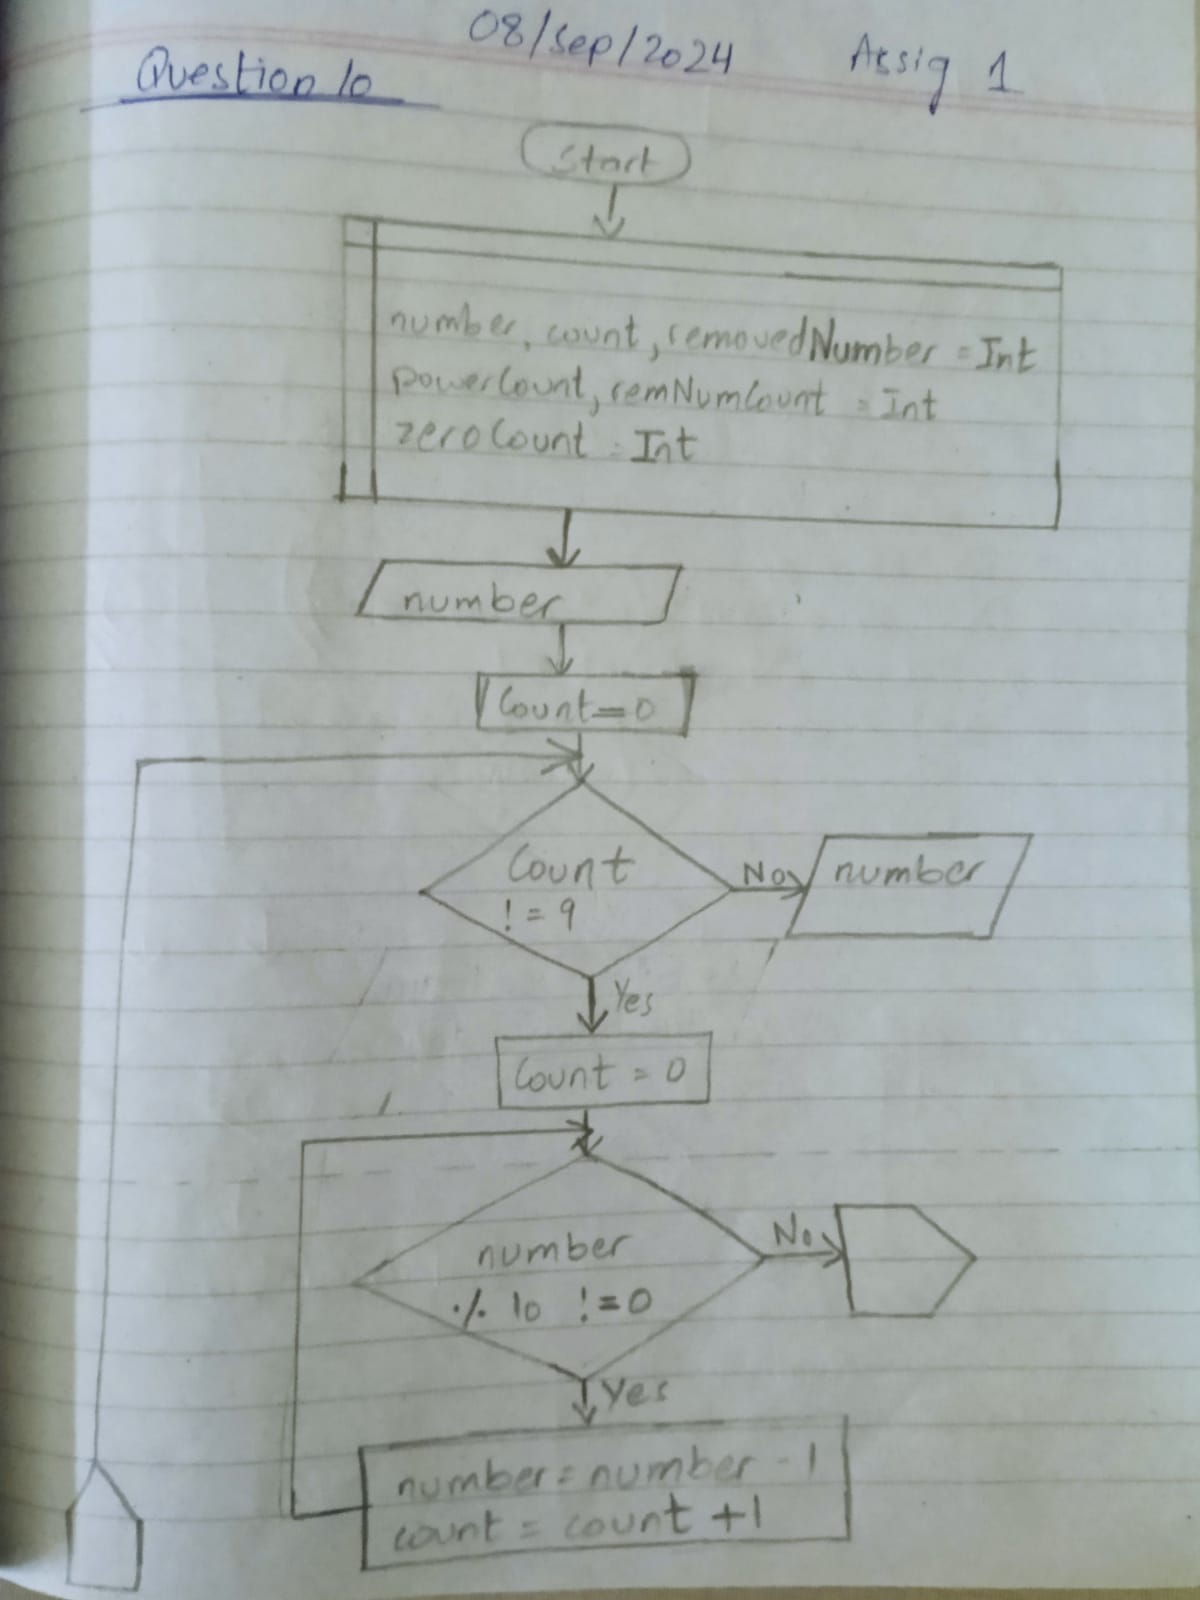 08/Sep/2024 Assig 1
Question 10
Start
number, count, removedNumber = Int
powerCount, remNumCount = Int
zeroCount = Int
number
Count=0
Count
!= 9
No
number
Yes
Count = 0
number
% 10 !=0
No
Yes
number = number - 1
count = count +1